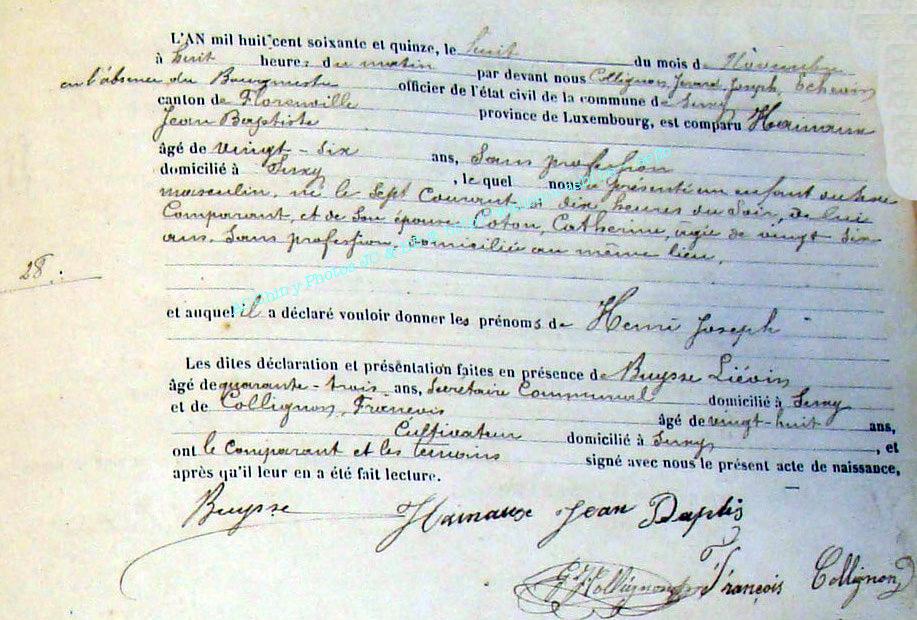 L'AN mil huit cent soixante et quinze, le huit du mois de Novembre
à huit heures du matin par devant nous Collignon, Jerard-Joseph, Echevin
en l'absence du Bourgmestre officier de l'état civil de la commune de Suxy
canton de Florenville province de Luxembourg, est comparu Hainaux
Jean Baptiste
âgé de vingt-six ans, Sans profession
domicilié à Suxy, le quel nous a présenté un enfant du sexe
masculin, né le Sept Courant, à dix heures du Soir, de lui
Comparant, et de Son épouse Coton, Catherine, agée de vingt-six
ans, Sans profession, domiciliée au même lieu,
28.
et auquel il a déclaré vouloir donner les prénoms de Henri Joseph
Les dites déclaration et présentation faites en présence de Buysse Liévin
âgé de quarante-trois ans, Secrétaire Communal domicilié à Suxy
et de Collignon, François âgé de vingt-huit ans,
Cultivateur domicilié à Suxy, et
ont le Comparant et les temoins signé avec nous le présent acte de naissance,
après qu'il leur en a été fait lecture.
Buysse Hainaux Jean Baptis
GJCollignon François Collignon